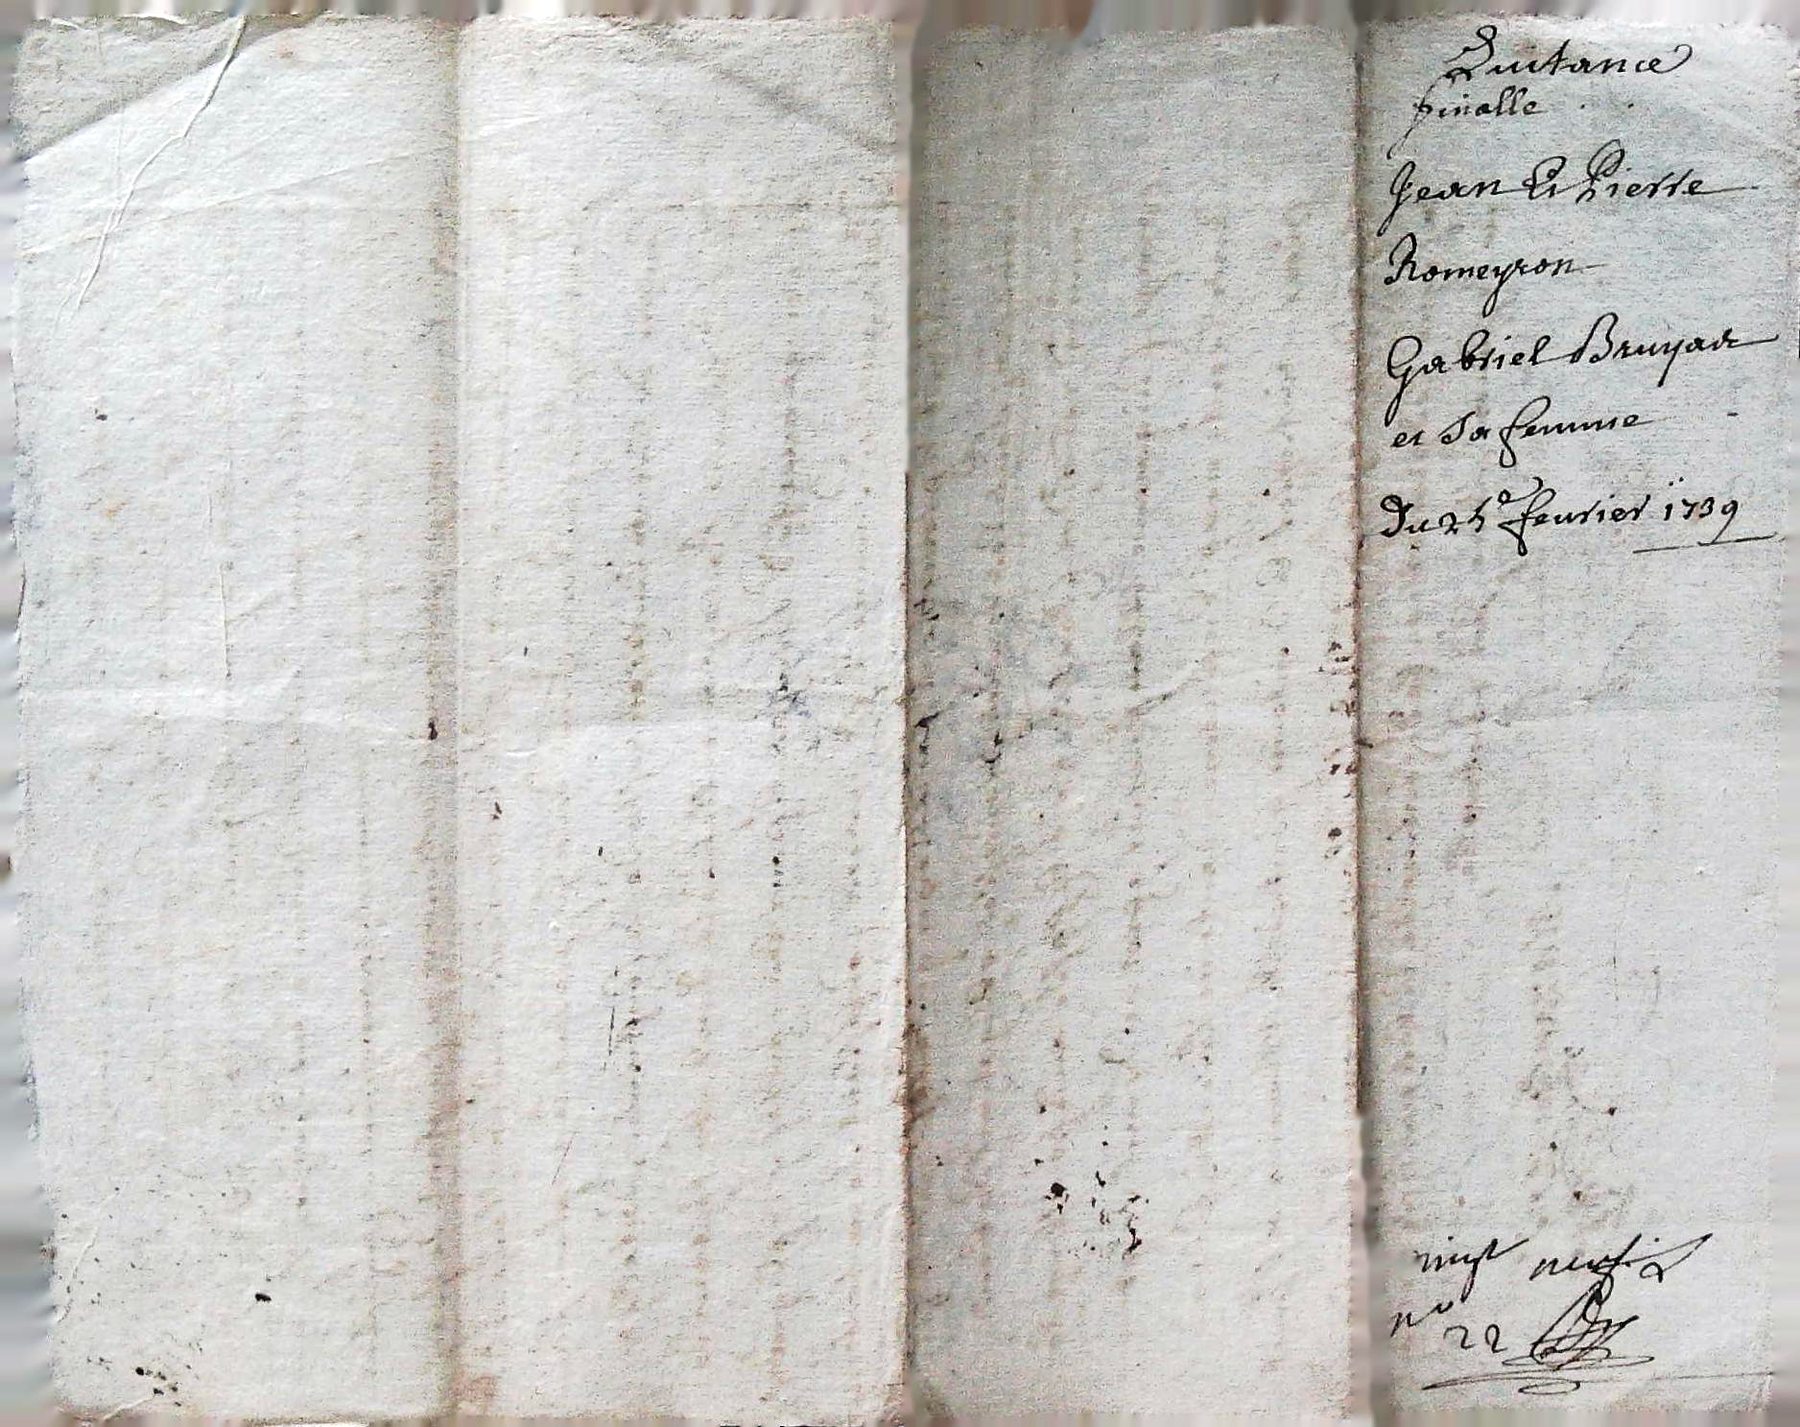 Quitance
finalle
Jean Et Pierre
Romeyron
Gabriel Bruyar
et Sa femme
Du 25e feurier 1739
vingt neuf
no 22